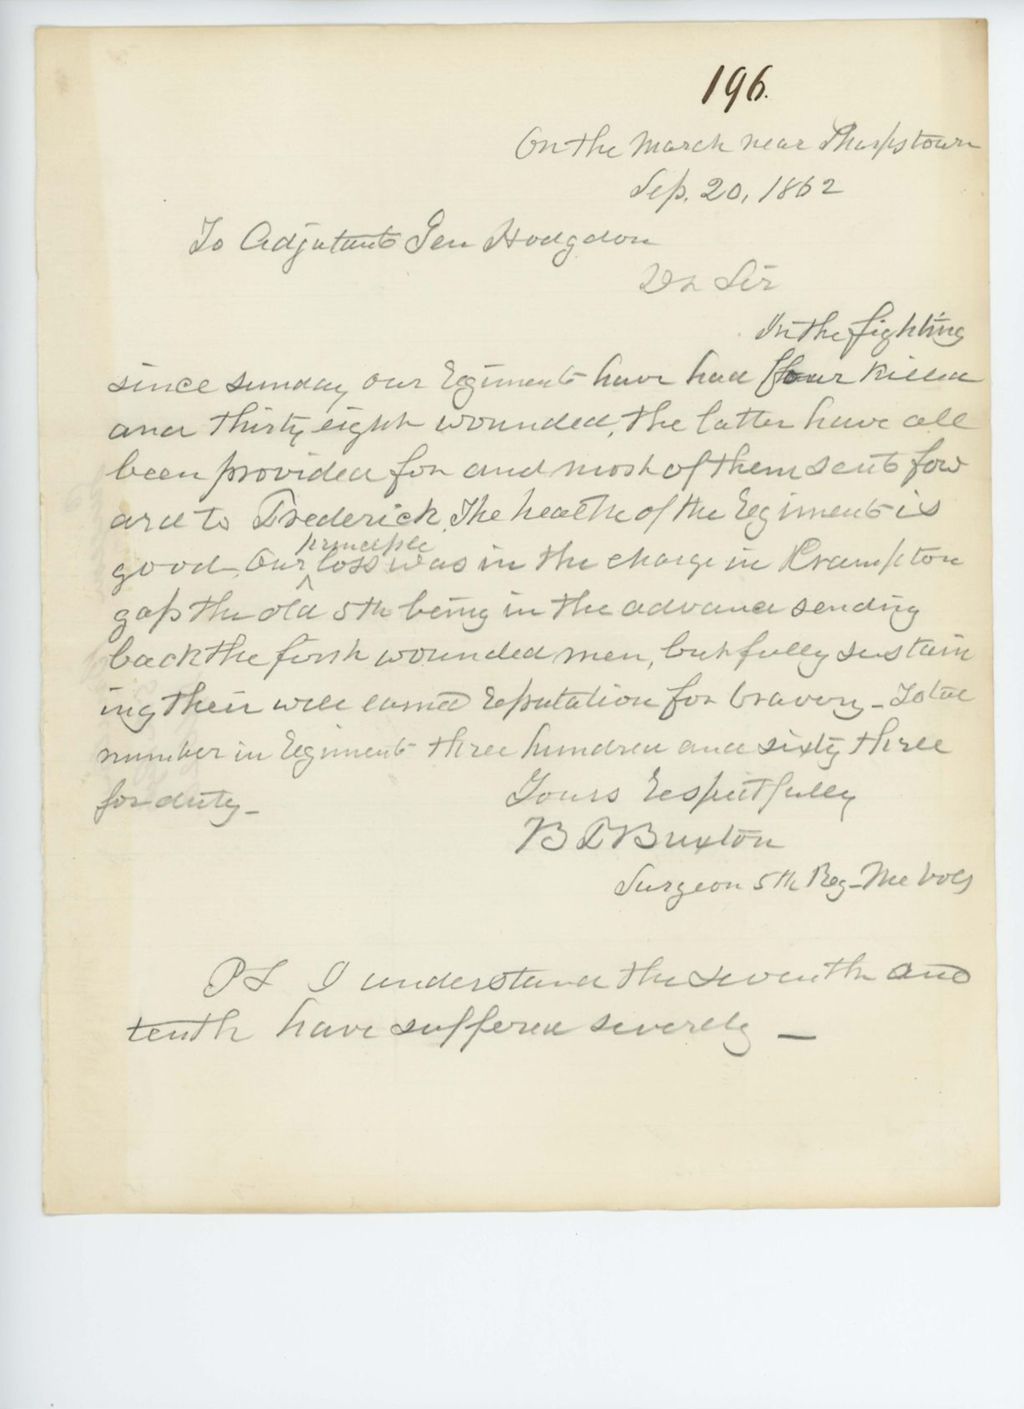 196.
On the March near Sharpstown
Sep. 20, 1862
To Adjutant Gen Hodgdon
Dr Sir
In the fighting
since sunday our Regiment have had four killed
and thirty eight wounded, the latter have all
been provided for and most of them sent fow
ard to Frederick. The health of the Regiment is
good. Our principle loss was in the charge in Krampton
gap the old 5th being in the advance sending
back the first wounded men, but fully sustain
ing their well earned reputation for bravery - Total
number in Regiment three hundred and sixty three
for duty -
Yours Respectfully
B F Buxton
Surgeon 5th Reg - Me Vols
PS I understand the seventh and
tenth have suffered severely -